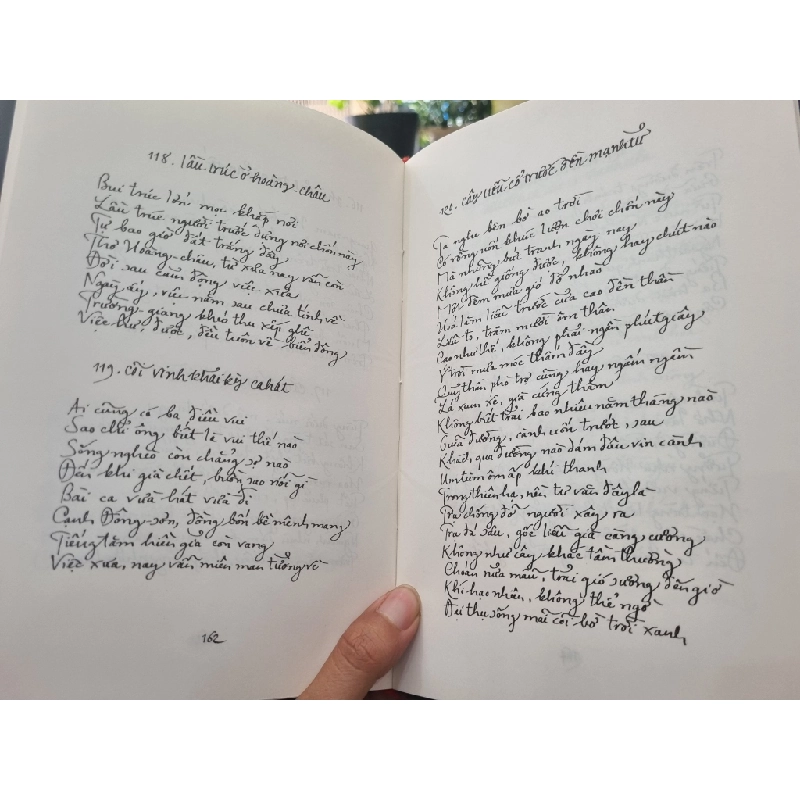 118. Lầu trúc ở Hoàng-châu
Bụi trúc lớn mọc khắp nơi
Lầu trúc người trước dựng nơi chốn này
Tự bao giờ đất trăng đầy
Thơ Hoàng-châu, từ xưa nay vẫn còn
Đời sau cảm động việc xưa
Ngày ấy, việc năm sau chưa tính về
Trường-giang khó thu xếp ghê
Việc hư được, đều trôn về biển đông
119. Cõi Vinh Khải Kỳ ca hát
Ai cũng có ba điều vui
Sao chỉ ông biết là vui thế nào
Sống nghèo còn chẳng sợ nào
Đến khi già chết, buồn sao nỗi gì
Bài ca vừa hát vừa đi
Cạnh Đông-sơn, đồng bốn bề mênh mang
Tiếng tăm hiền giả còn vang
Việc xưa, nay vẫn miên man tưởng về
162
cây liễu cổ trước đền Mạnh tử
Ta nghe bên bờ ao trời
Cỏ rồng vốn khúc lượn chốc chốn này
Mà những bức tranh ngày nay
Không vẽ giống được, không hay chút nào
Một đêm mưa gió đổ nhào
Hoá làm liễu trước cửa cao đền thần
Lâu to, trăm mười ôm thân
Cao như thế, không phải ngần phút giây
Trời mưa móc thấm đầy
Quỷ thần phò trợ cũng hay ngấm ngầm
Lá xum xê, già cứng thẳm
Không biết trải bao nhiêu năm tháng nào
Giữa đường, cành uốn trước, sau
Khách qua đường nào dám đâu vin cành
Um tùm ôm ấp khí thanh
Trong thiên hạ, nền tư văn đây là
Tra chống đỡ người xây ra
Tra da sâu, gốc liễu già càng cường
Không như cây khác tầm thường
Choán nửa mẫu, trải gió sương đến giờ
Khí hạo nhân, không thể ngờ
Đại thụ sống mãi cõi bờ trời xanh